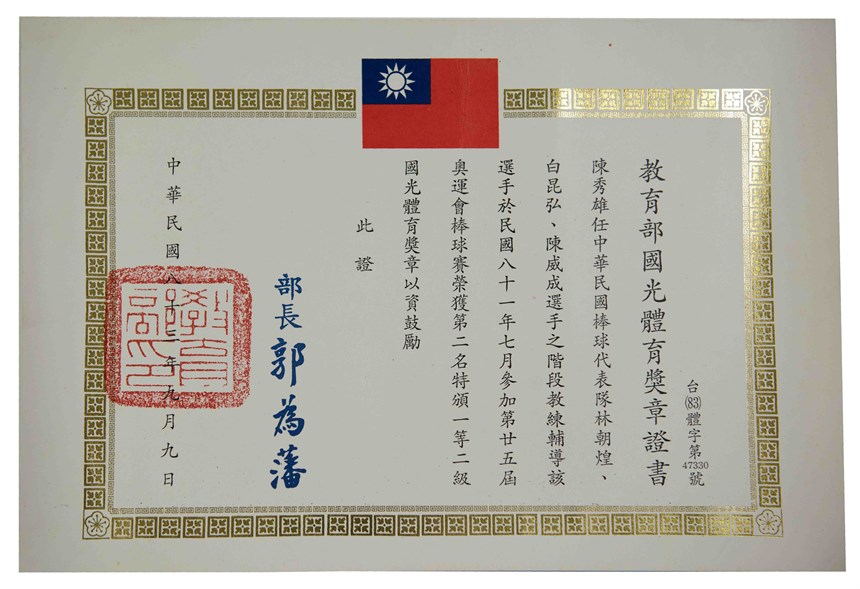 教育部國光體育獎章證書
台(83)體字第47330號
陳秀雄任中華民國棒球代表隊林朝煌、
白昆弘、陳威成選手之階段教練輔導該
選手於民國八十一年七月參加第廿五屆
奧運會棒球賽榮獲第二名特頒一等二級
國光體育獎章以資鼓勵
此證
部長郭為藩
中華民國八十三年九月九日
教育部印